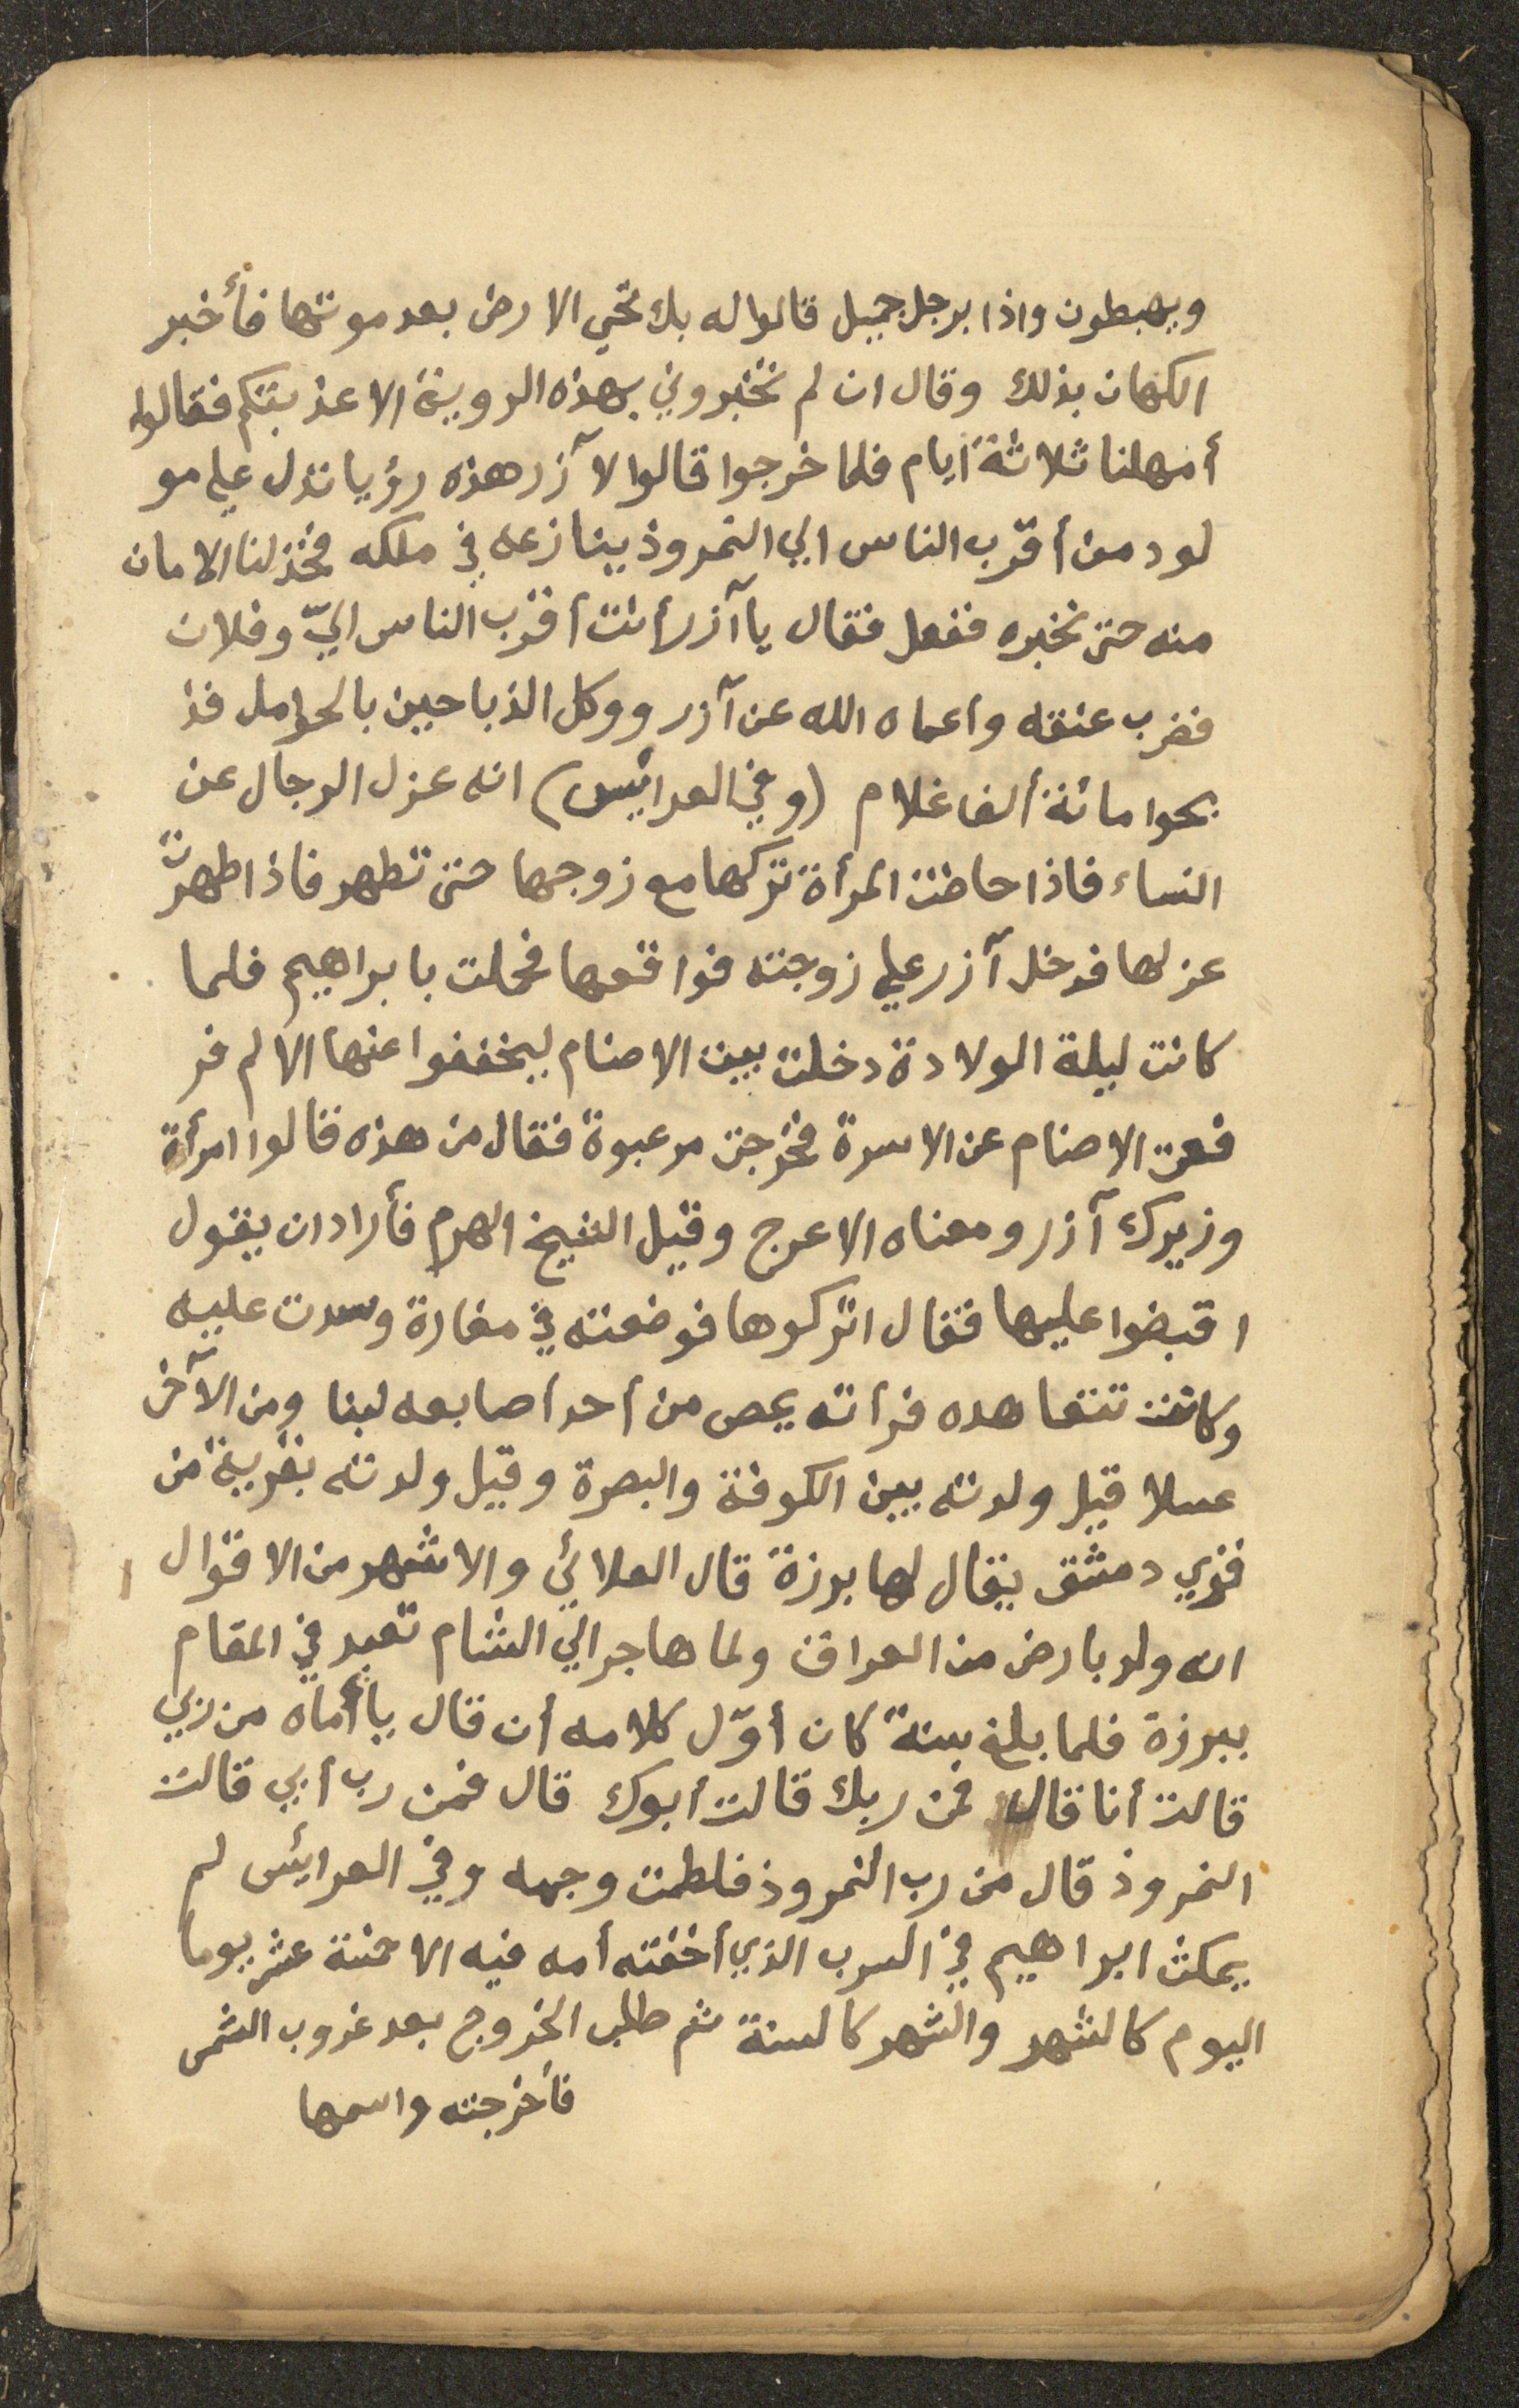 ويهبطون واذا برجل جميل قالوا له بك تحي الارض بعد موتها فأخبر
الكهان بذلك وقال ان لم تخبروني بهذه الروية الا عذبتكم فقالوا
أمهلنا ثلاثة أيام فلما خرجوا قالوا لآزر هذه رؤيا تدل علي مو
لود من أقرب الناس الي النمروذ ينازعه في ملكه فخذ لنا الامان
منه حتى نخبره ففعل فقال يا آزر أنت أقرب الناس اليّ وفلان
فضرب عنقه واعماه الله عن آزر ووكل الذباحين بالحوامل فذ
بحوا مائة ألف غلام (وفي العرائس) انه عزل الرجال عن
النساء فاذا حاضت المرأة تركها مع زوجها حتى تطهر فاذا طهرت
عزلها فدخل آزر علي زوجته فواقعها فحملت بابراهيم فلما
كانت ليلة الولادة دخلت بيت الاصنام ليخففوا عنها الالم فر
فعت الاصنام عن الاسرة فخرجت مرعبوة فقال من هذه قالوا امرأة
وزيرك آزر ومعناه الاعرج وقيل الشيخ الهرم فأراد ان يقول
اقبضوا عليها فقال اتركوها فوضعته في مغارة وسدت عليه
وكانت تتعاهده فرأته يمص من أحد أصابعه لبنا ومن الآخر
عسلا قيل ولدته بين الكوفة والبصرة وقيل ولدته بقرية من
قري دمشق يقال لها برزة قال العلائي والاشهر من الاقوال
انه ولد بارض من العراق ولما هاجر الي الشام تعبد في المقام
ببرزة فلما بلغ سنة كان أوّل كلامه أن قال يا أماه من ربي
قالت أنا قال فمن ربك قالت أبوك قال فمن رب أبي قالت
النمروذ قال من رب النمروذ فلطمت وجهه وفي العرائس لم
يمكث ابراهيم في السرب الذي أخفته أمه فيه الا خمسة عشر يوما
اليوم كالشهر والشهر كالسنة ثم طلب الخروج بعد غروب الشمس
فأخرجته واسمها